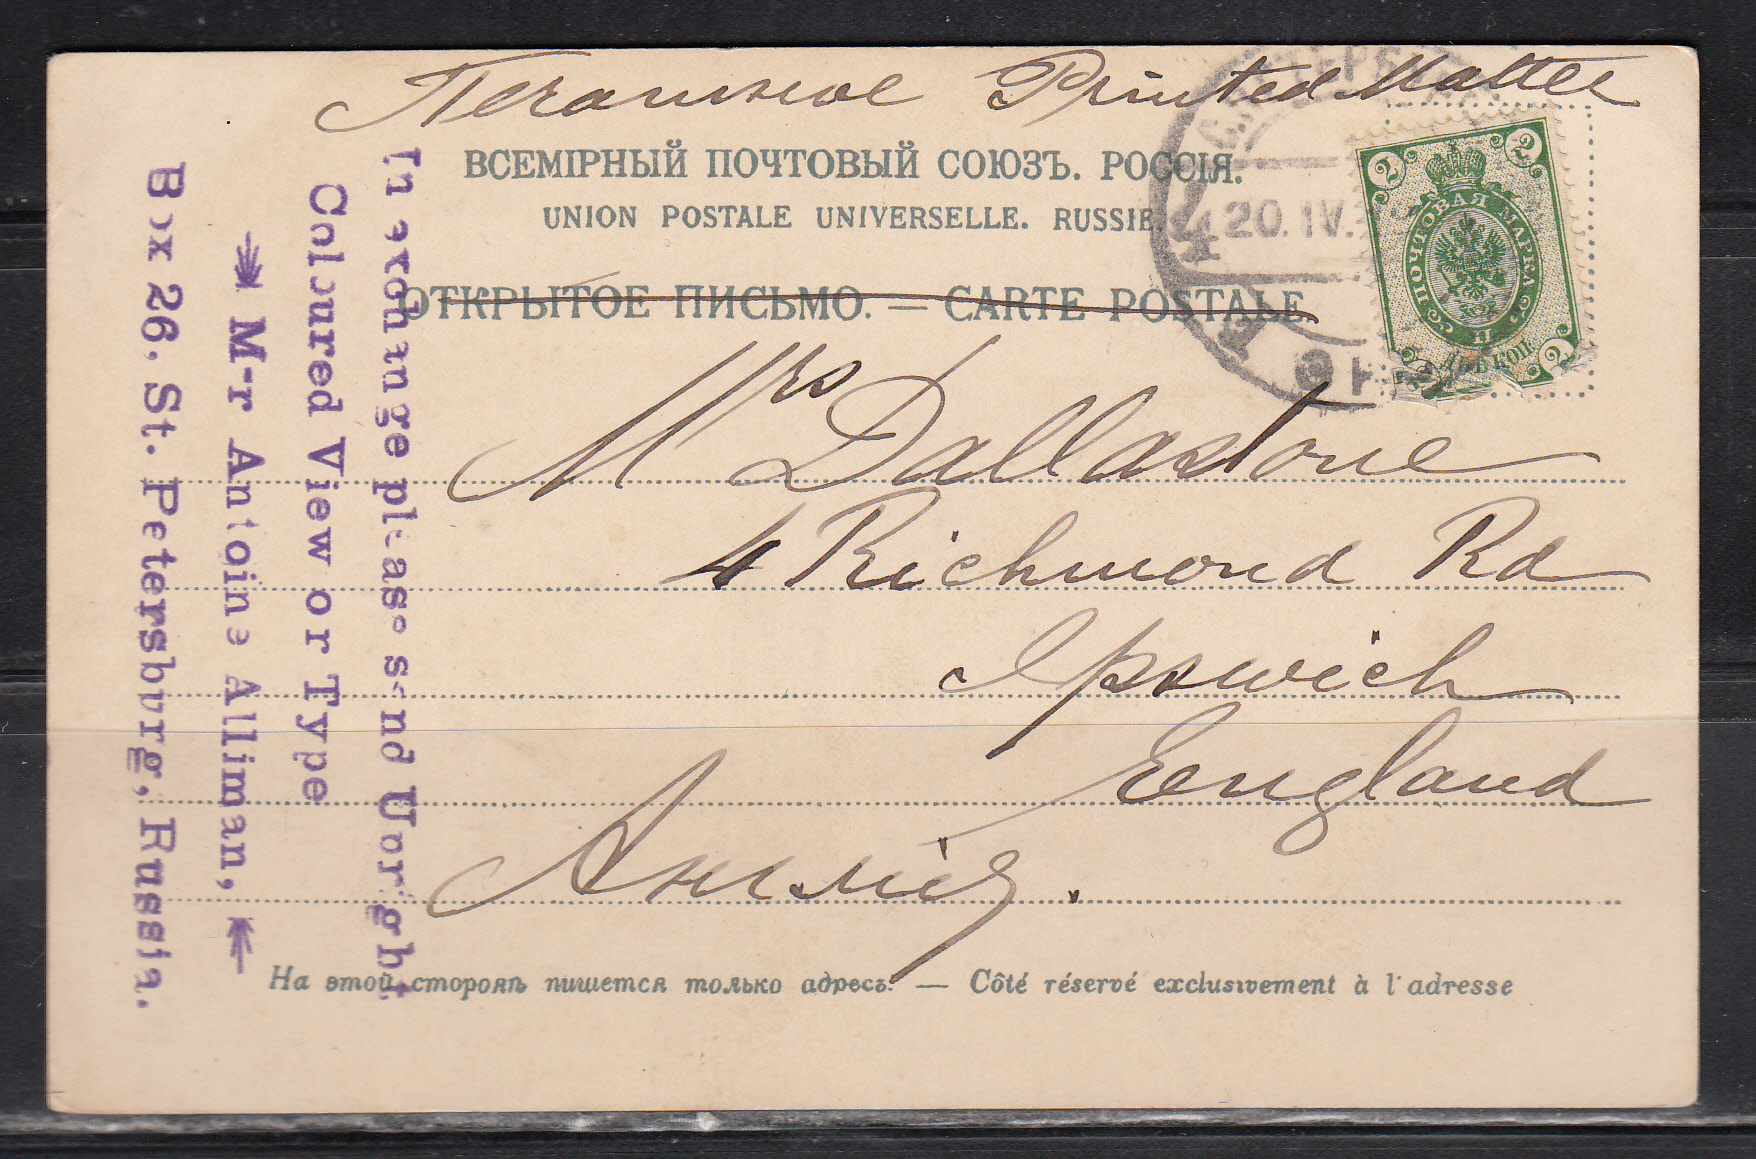 Печатное Printed Matter
ВСЕМІРНЫЙ ПОЧТОВЫЙ СОЮЗЪ. РОССІЯ.
UNION POSTALE UNIVERSELLE. RUSSIE.
ОТКРЫТОЕ ПИСЬМО. — CARTE POSTALE.
20.IV.
2 2
ПОЧТОВАЯ МАРКА
2 2
Mrs Dallastone
4 Richmond Rd
Ipswich
England
Англія.
На этой сторонѣ пишется только адресъ. — Côté réservé exclusivement à l'adresse
In exchange please send Upright
Coloured View or Type
M-r Antoine Alliman,
Box 26. St. Petersburg, Russia.